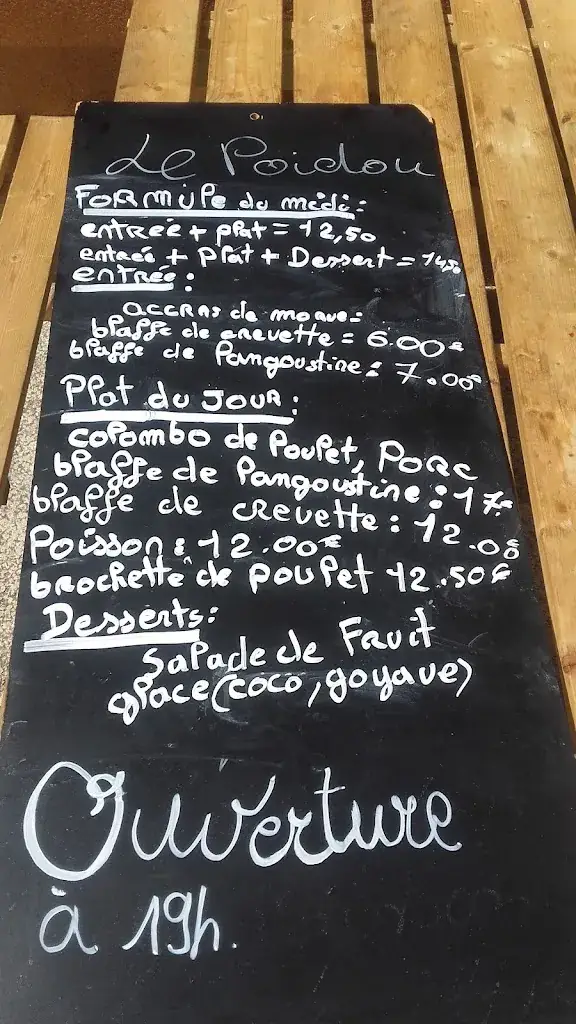 Le Poidou
Formule du midi:
entrée + plat = 12,50
entrées + Plat + Dessert = 14,50
entrée:
accras de morue:
blaffe de crevette = 6.00€
blaffe de langoustine: 7.00€
Plat du JOUR:
colombo de Poulet, PORC
blaffe de langoustine: 17€
blaffe de crevette: 12.00
Poisson: 12.00€
brochette de poulet 12.50€
Desserts:
Salade de Fruit
glace (coco, goyave)
Ouverture
à 19h.